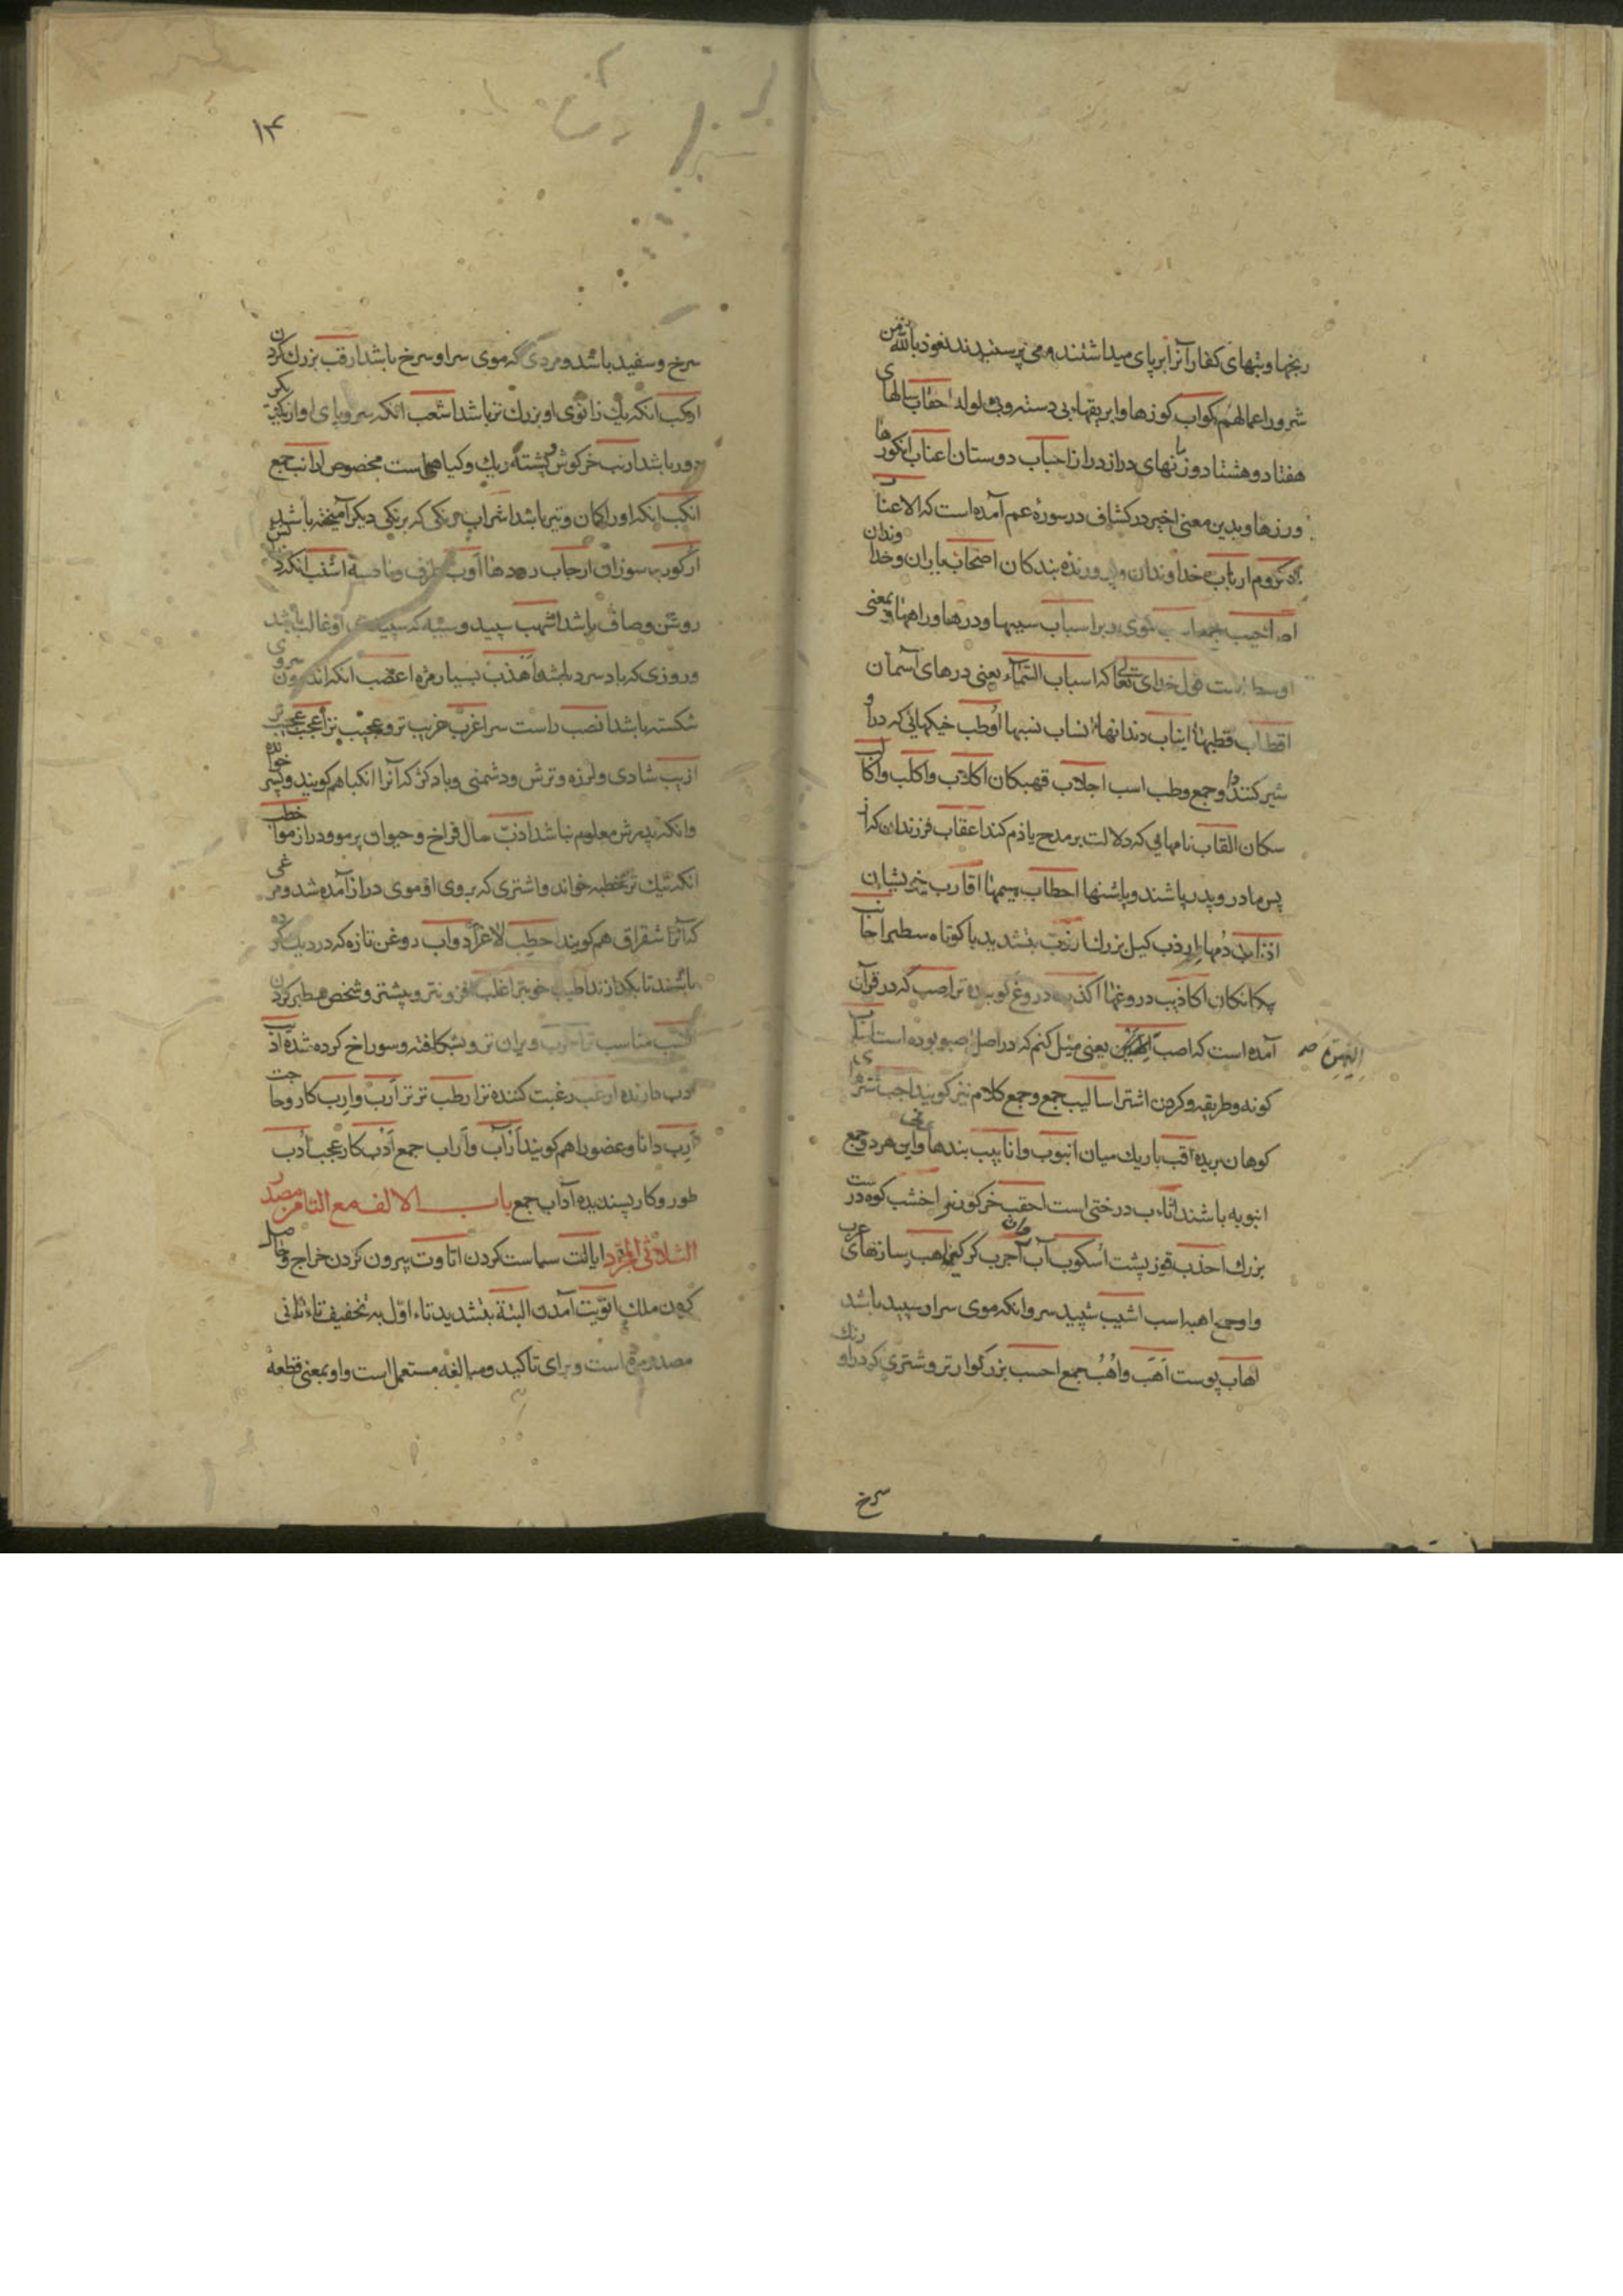 رنجها و بتهای کفار آنرا برپای میداشتند و می پرستیدند نعوذ بالله من
شرور اعمالهم اکواب کوزها و ابریقهاء بی دسته و بی لوله احقاب سالهای
هفتاد و هشتاد و زمانهای دراز دراز احباب دوستان اعناب انکورها
و رزها و بدین معنی اخیر در کشاف در سورۀ عم آمده است که الاعناب
الکروم ارباب خداوندان و پرورنده بندکان اصحاب یاران و خداوندان
اسباب سببها و درها و راهها و بمعنی
اوسط است قول خدای تعالی که اسباب السماء یعنی درهای آسمان
اقطاب قطبها انیاب دندانها انساب نسبها اوطب خیکهائی که در او
شیر کنند و او جمع وطب است اجلاب قهبکان اکلاب و اکلب و اکالب
سکان القاب نامهایی که دلالت بر مدح یا ذم کند اعقاب فرزندان که از
پس مادر و پدر باشند و پاشنها احطاب هیمها اقارب خویشان
اذناب دمها اردب کیل بزرک ارزب بتشدید با کوتاه سطبر اجانب
بیکانکان اکاذیب دروغها اکذب دروغ کوینده تر اصب که در قرآن
آمده است که اصب الیهن یعنی میل کنم که در اصل اصبو بوده است اسلوب
الیهن صح
کونه و طریقه و کردن اشتر اسالیب جمع و جمع کلام نیز کویند اجب شتر
کوهان بریده اقب باریک میان انبوب و انابیب بندها و این هر دو جمع
انبوبه باشند اثاب درختی است احقب خر کور نر اخشب کوه درشت
بزرک احدب قوز پشت اسکوب آب روان اجرب کرکین اهب سازهای حرب
و او جمع اهبه است اشیب سپید سر و آنکه موی سر او سپید باشد
اهاب پوست اهب و اهب جمع احسب بزرکوارتر و شتری که در او رنک
سرخ
۱۴
سرخ و سفید باشد و مردی که موی سر او سرخ باشد ارقب بزرک کردن
ارکب آنکه یک زانوی او بزرک تر باشد اشعب آنکه سروهای او از یکدیکر
دور باشد ارنب خرکوش و پشته ریک و کیاهی است مخصوص ارانب جمع
انکب آنکه او را کمان و تیر باشد اشراب رنکی که برنکی دیکر آمیخته باشد
روشن و صاف باشد اشهب سپید و سیه که سپیدی او غالب باشد
و روزی که باد سرد باشد اهدب بسیار مژه اعضب آنکه اندرون سروی
شکسته باشد انصب راست سر اغرب غریب تر و عجیب تر اعجب عجیب تر
ازیب شادی و لرزه و ترش و دشمنی و باد کژ که آنرا نکبا هم کویند و پسر خوانده
و آنکه پدرش معلوم نباشد ادب حال فراخ و حیوان پر مو و دراز مو اخطب
آنکه نیک تر خطبه خواند و اشتری که بر روی او موی دراز آمده شد و مرغی
که آنرا شقراق هم کویند احطب لاغر اذواب روغن تازه که در دیک کرده
باشند تا بکدازند اطیب خوبتر اغلب افزونتر و بیشتر و شخص سطبر کردن
انسب مناسب تر اخرب ویران تر و بشکافته و سوراخ کرده شده اذب
ارغب رغبت کننده تر ارطب تر تر ارب و ارب کار و حاجت
ارب دانا و عضو را هم کویند آراب و ارآب جمع ادب کار عجب ادب
طور و کار پسندیده آداب جمع باب الالف مع التا من مصدر
الثلاثی المجرد ایالت سیاست کردن اتاوت بیرون کردن خراج و حاصل
کردن ملک اتویت آمدن البتة بتشدید تاء اول به تخفیف تاء ثانی
مصدر مره است و برای تاکید و مبالغه مستعمل است و او بمعنی قطعه